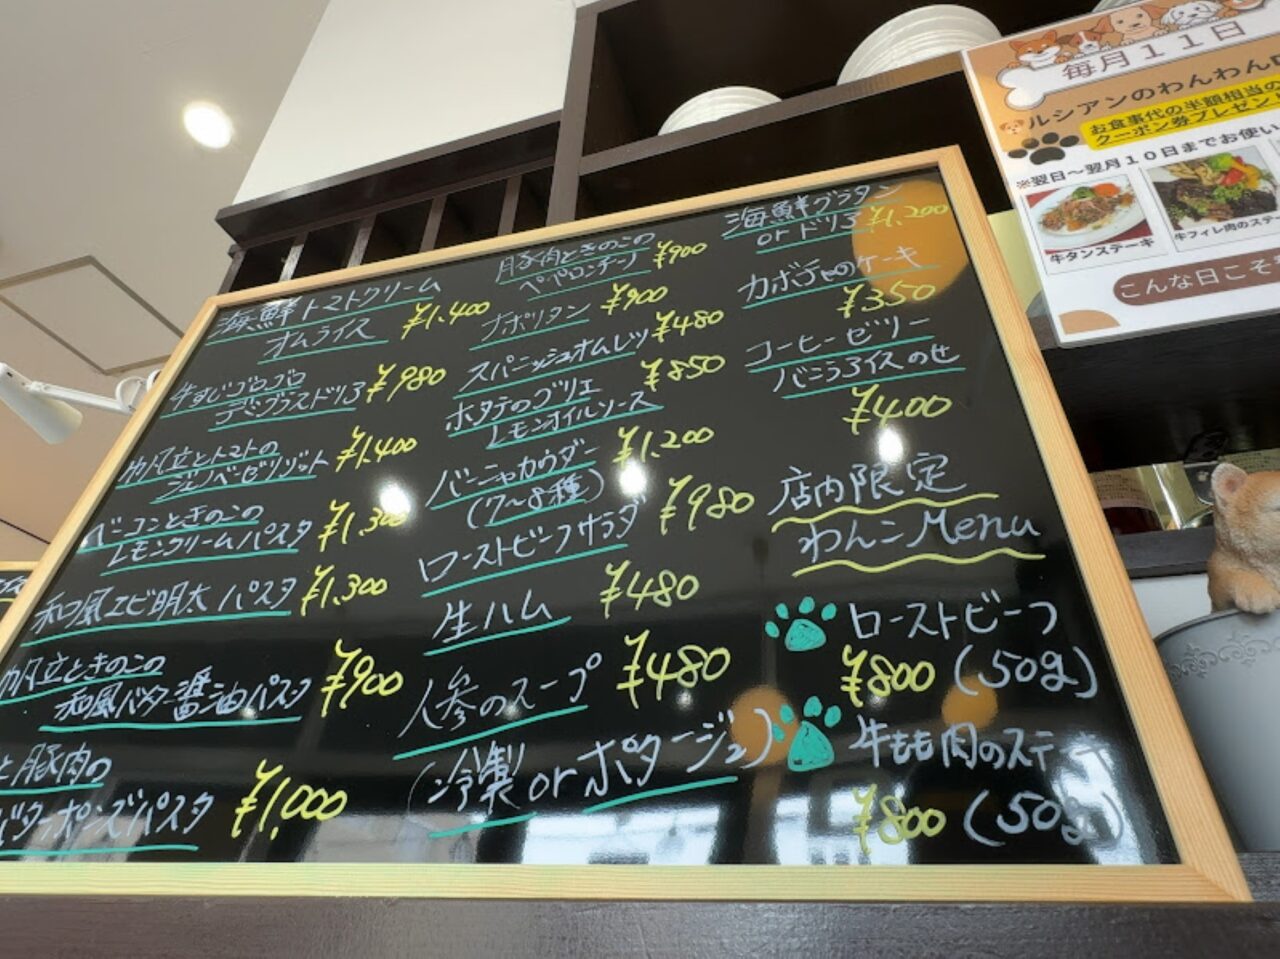 海鮮トマトクリーム
オムライス ¥1,400
牛すじゴロゴロ
デミグラスドリア ¥980
帆立とトマトの
ジェノベーゼリゾット ¥1,400
ベーコンときのこの
レモンクリームパスタ ¥1,300
和風エビ明太パスタ ¥1,300
帆立ときのこの
和風バター醤油パスタ ¥900
と豚肉の
バターポン酢パスタ ¥1,000
豚肉ときのこの
ペペロンチーノ ¥900
ナポリタン ¥900
スパニッシュオムレツ ¥480
ホタテのグリエ
レモンオイルソース ¥850
バーニャカウダー
(7~8種) ¥1,200
ローストビーフサラダ ¥980
生ハム ¥480
人参のスープ ¥480
(冷製 or ポタージュ)
海鮮グラタン
or ドリア ¥1,200
カボチャのケーキ
¥350
コーヒーゼリー
バニラアイスのせ
¥400
店内限定
わんこMenu
ローストビーフ
¥800 (50g)
牛もも肉のステ
¥800 (50g)
毎月11日
ルシアンのわんわん
お食事代の半額相当の
クーポン券プレゼント
※翌日~翌月10日までお使い
牛タンステーキ
牛フィレ肉のステ
こんな日こそ